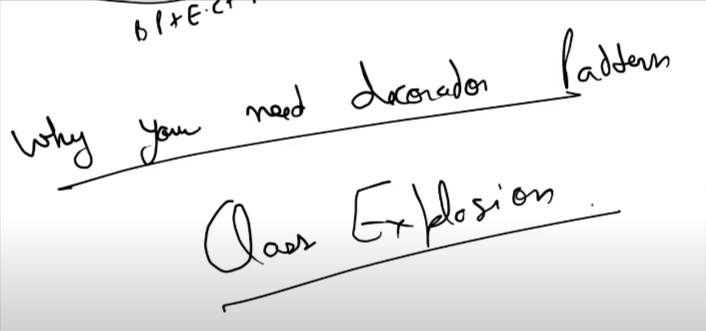 BP+E.C+
Why you need decorador Pattern
Class Explosion.